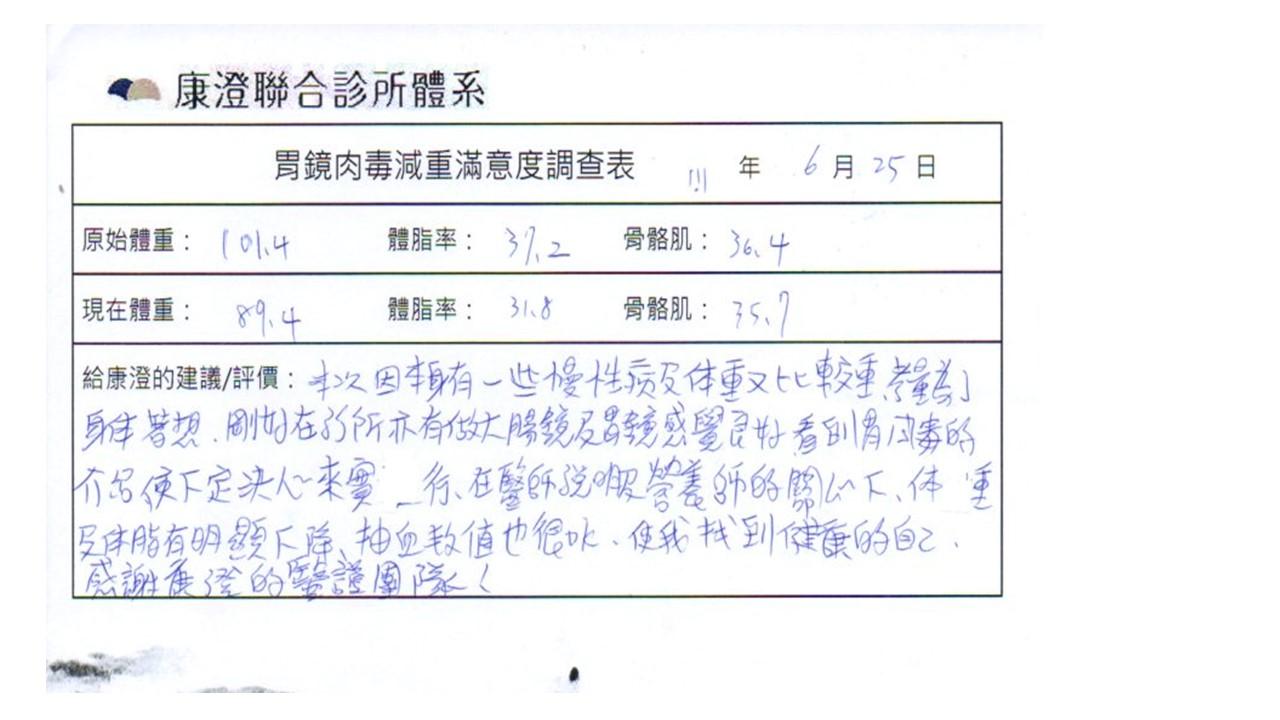 康澄聯合診所體系
胃鏡肉毒減重滿意度調查表 111 年 6 月 25 日
原始體重： 101.4 體脂率： 37.2 骨骼肌： 36.4
現在體重： 89.4 體脂率： 31.8 骨骼肌： 35.7
給康澄的建議/評價： 本次因本身有一些慢性病及体重又比較重,考量為了
身体著想、剛好在診所亦有做大腸鏡及胃鏡感覺良好看到胃肉毒的
介召便下定決心來實行、在醫師說明及營養師的關心下、体重
及体脂有明顯下降、抽血数值也很水、使我找到健康的自己、
感謝康澄的醫護團隊!